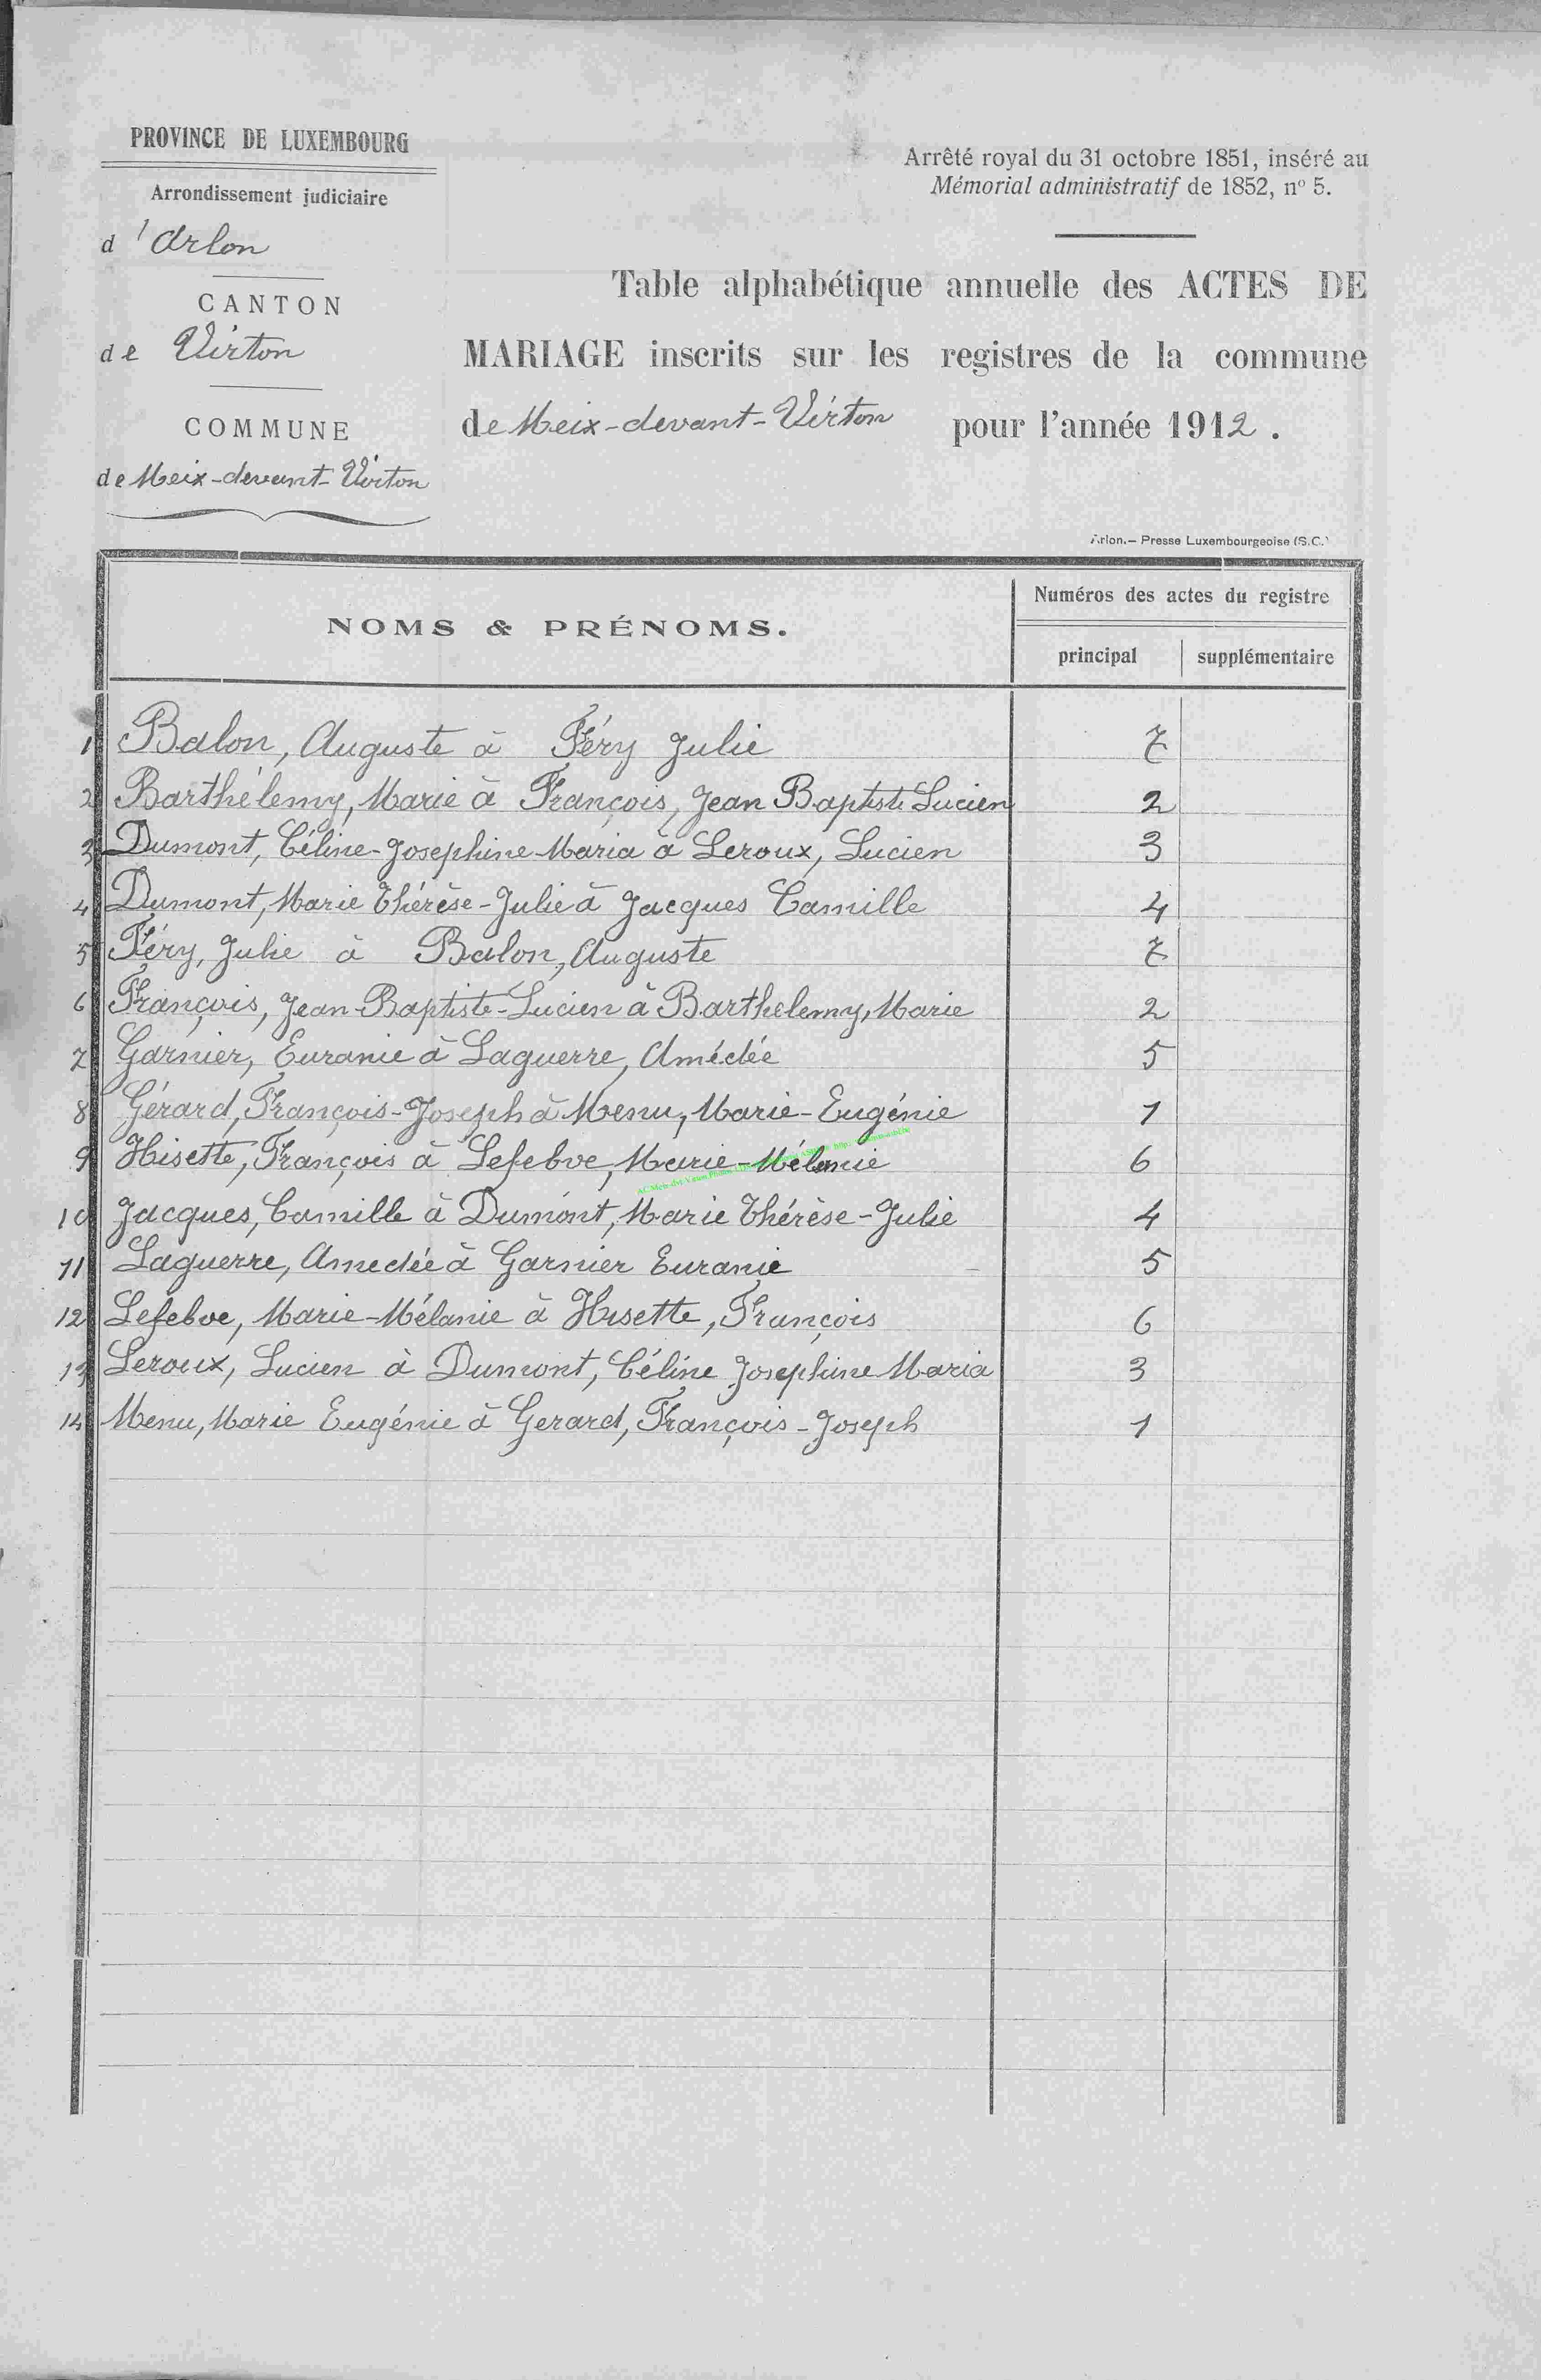 PROVINCE DE LUXEMBOURG
Arrondissement judiciaire
d'Arlon
CANTON
de Virton
COMMUNE
de Meix-devant-Virton
Arrêté royal du 31 octobre 1851, inséré au
Mémorial administratif de 1852, nº 5.
Table alphabétique annuelle des ACTES DE
MARIAGE inscrits sur les registres de la commune
de Meix-devant-Virton pour l'année 1912.
Arlon.— Presse Luxembourgeoise (S.C.)
NOMS & PRÉNOMS.
Numéros des actes du registre
principal supplémentaire
1 Balon, Auguste à Féry Julie 7
2 Barthélemy, Marie à François, Jean Baptiste Lucien 2
3 Dumont, Céline-Josephine-Maria à Leroux, Lucien 3
4 Dumont, Marie Thérèse-Julie à Jacques Camille 4
5 Féry, Julie à Balon, Auguste 7
6 François, Jean-Baptiste-Lucien à Barthelemy, Marie 2
7 Garnier, Euranie à Laguerre, Amédée 5
8 Gérard, François-Joseph à Menu, Marie-Eugénie 1
9 Hisette, François à Lefebve, Marie-Mélanie 6
10 Jacques, Camille à Dumont, Marie Thérèse-Julie 4
11 Laguerre, Amedée à Garnier Euranie 5
12 Lefebve, Marie-Mélanie à Hisette, François 6
13 Leroux, Lucien à Dumont, Céline Josephine Maria 3
14 Menu, Marie Eugénie à Gerard, François-Joseph 1